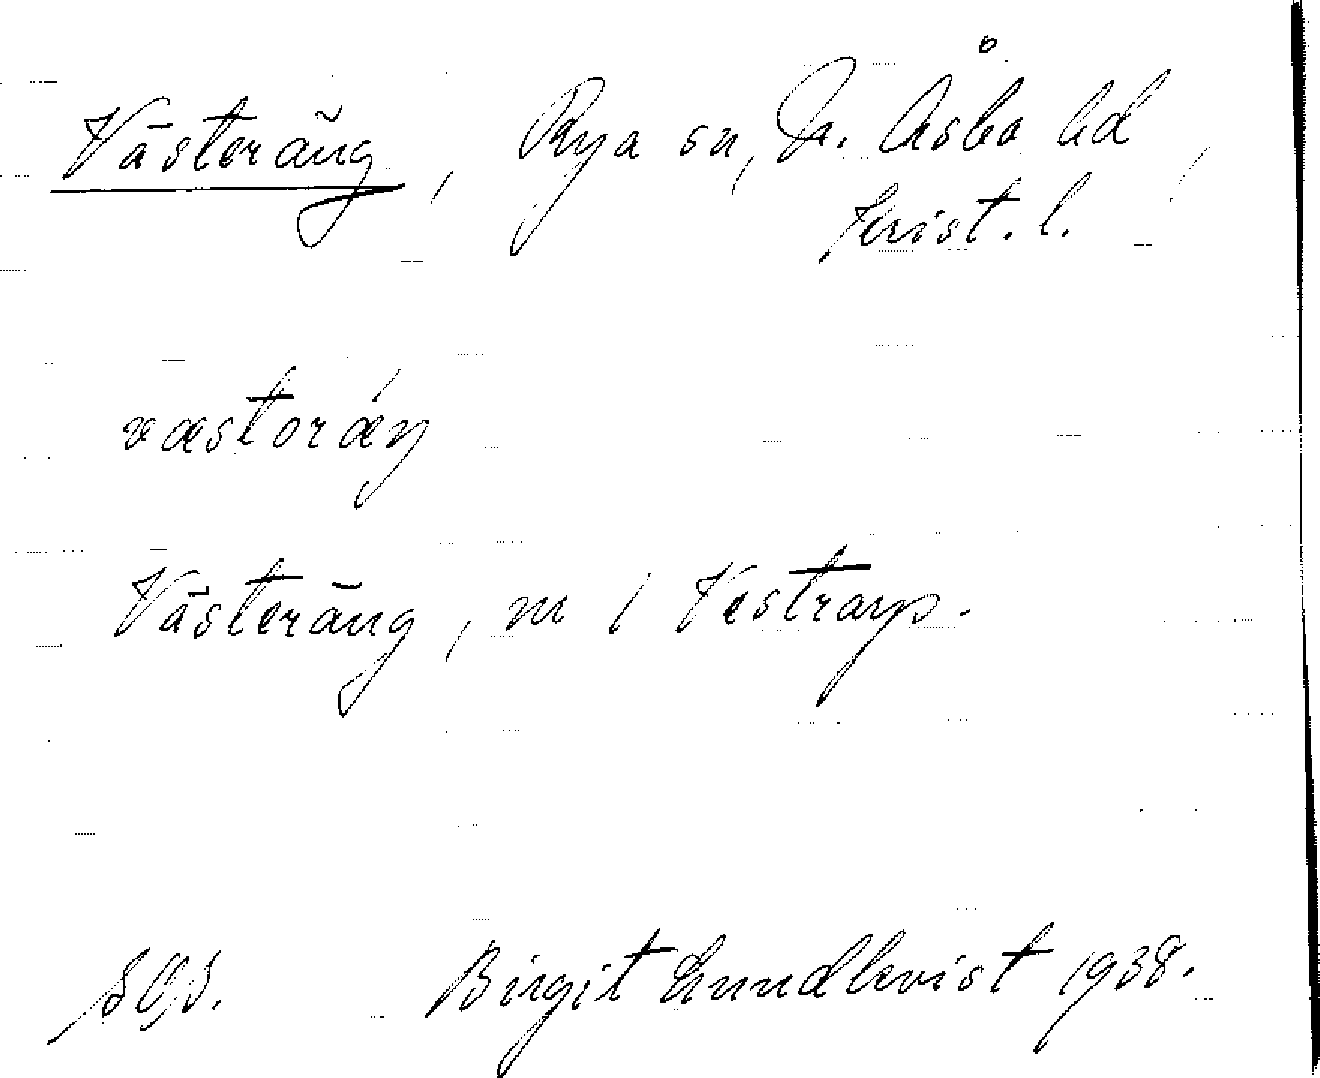 Västeräng, Rya sn, Ö. Åsbo hd,
Krist. l.
væstərǽŋ
Västeräng, m / Västrarp.
SOI. Birgit Lundkvist 1938.